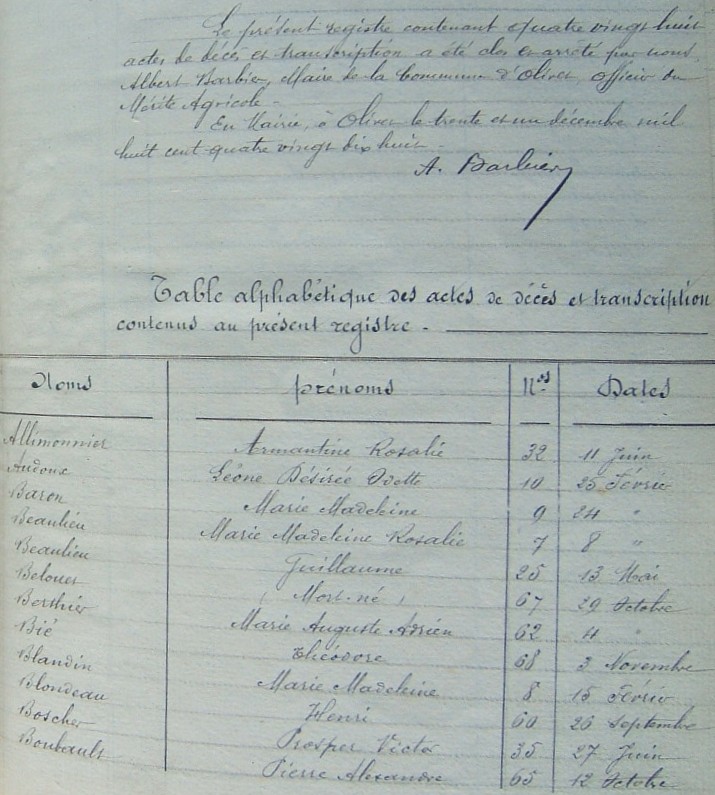 Le présent registre contenant quatre vingt huit
actes de décès et transcription a été clos et arrêté par nous,
Albert Barbier, Maire de la Commune d'Olivet, Officier du
Mérite Agricole -
En Mairie, à Olivet le trente et un décembre mil
huit cent quatre vingt dix huit -
A. Barbier
Table alphabétique des actes de décès et transcription
contenus au présent registre -
Noms Prénoms Nos Dates
Allimonnier Armantine Rosalie 32 11 Juin
Audoux Léone Désirée Odette 10 25 Février
Baron Marie Madeleine 9 24 "
Beaulieu Marie Madeleine Rosalie 7 8 "
Beaulieu Guillaume 25 13 Mai
Belouet ( Mort-né ) 67 29 Octobre
Berthier Marie Auguste Adrien 62 4 "
Bié Théodore 68 3 Novembre
Blandin Marie Madeleine 8 15 Février
Blondeau Henri 60 26 Septembre
Boscher Prosper Victor 35 27 Juin
Boubault Pierre Alexandre 65 12 Octobre